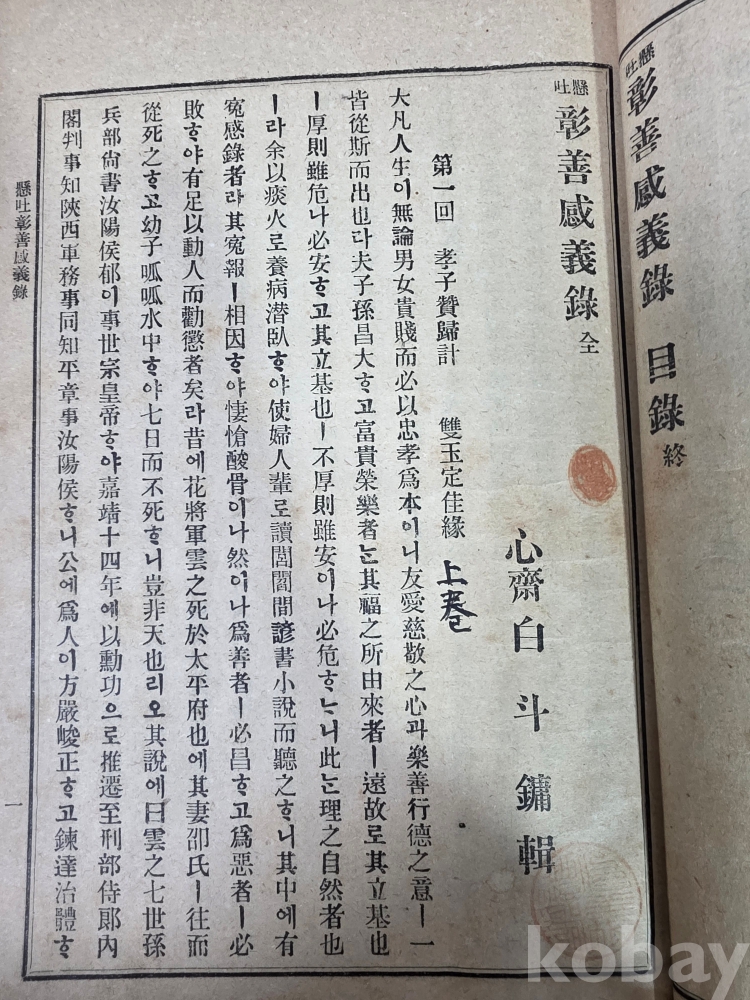 懸吐 彰善感義錄 目錄 終
懸吐 彰善感義錄 全
心齋 白斗鏞 輯
第一回 孝子贊歸計 雙玉定佳緣 上卷
大凡人生이無論男女貴賤而必以忠孝爲本이니友愛慈敬之心과樂善行德之意ㅣ一
皆從斯而出也다夫子孫昌大ᄒᆞ고富貴榮樂者ᄂᆞᆫ其福之所由來者ㅣ遠故로其立基也
ㅣ厚則雖危나必安ᄒᆞ고其立基也ㅣ不厚則雖安이나必危ᄒᆞᄂᆞ니此ᄂᆞᆫ理之自然者也
ㅣ라余以痰火로養病潜臥ᄒᆞ야使婦人輩로讀閭閻間諺書小說而聽之ᄒᆞ니其中에有
寃感錄者라其寃報ㅣ相因ᄒᆞ야悽愴酸骨이나然이나爲善者ㅣ必昌ᄒᆞ고爲惡者ㅣ必
敗ᄒᆞ야有足以動人而勸懲者矣라昔에花將軍雲之死於太平府也에其妻卲氏ㅣ往而
從死之ᄒᆞ고幼子呱呱水中ᄒᆞ야七日而不死ᄒᆞ니豈非天也리오其說에曰雲之七世孫
兵部尙書汝陽侯郁이事世宗皇帝ᄒᆞ야嘉靖十四年에以勳功으로推遷至刑部侍郞內
閣判事知陝西軍務事同知平章事汝陽侯ᄒᆞ니公에爲人이方嚴峻正ᄒᆞ고鍊達治體ᄒᆞ
懸吐彰善感義錄
一
kobay